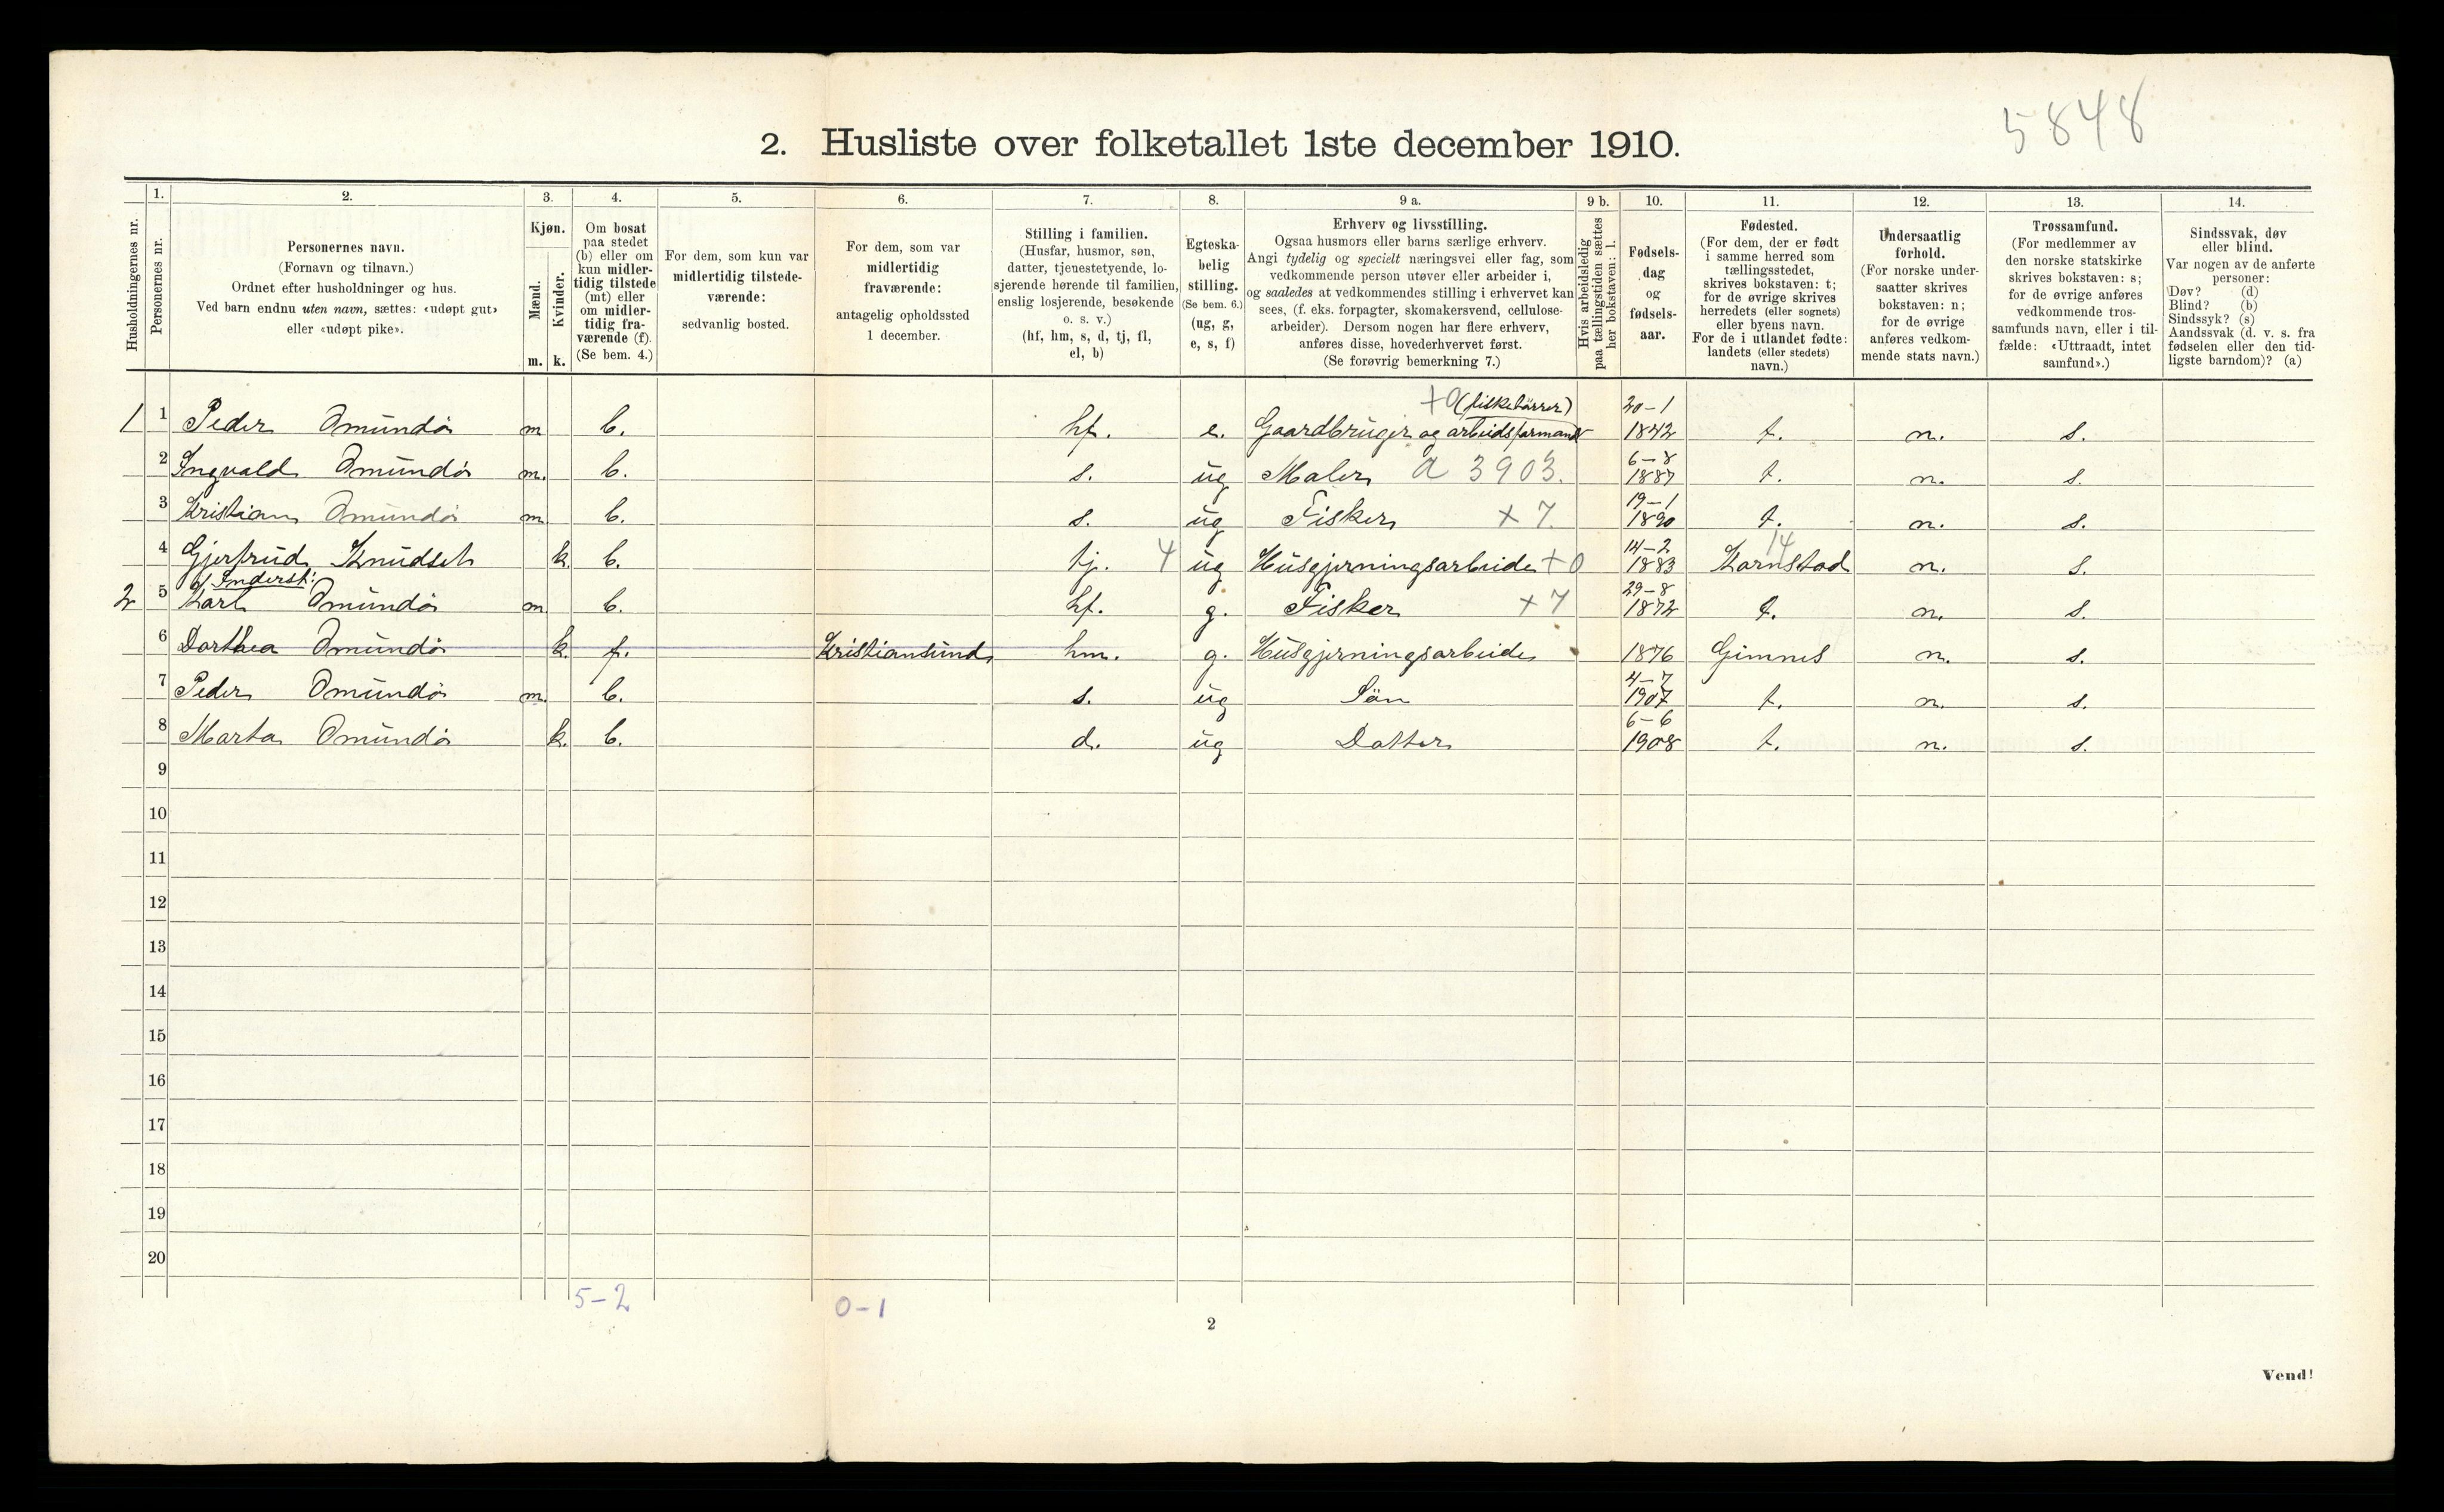 5848
2. Husliste over folketallet 1ste december 1910.
Husholdningernes nr.
1.
Personernes nr.
2.
Personernes navn.
(Fornavn og tilnavn.)
Ordnet efter husholdninger og hus.
Ved barn endnu uten navn, sættes: «udøpt gut»
eller «udøpt pike».
3.
Kjøn.
Mænd.
m.
Kvinder.
k.
4.
Om bosat
paa stedet
(b) eller om
kun midler-
tidig tilstede
(mt) eller
om midler-
tidig fra-
værende (f).
(Se bem. 4.)
5.
For dem, som kun var
midlertidig tilstede-
værende:
sedvanlig bosted.
6.
For dem, som var
midlertidig
fraværende:
antagelig opholdssted
1 december.
7.
Stilling i familien.
(Husfar, husmor, søn,
datter, tjenestetyende, lo-
sjerende hørende til familien,
enslig losjerende, besøkende
o. s. v.)
(hf, hm, s, d, tj, fl,
el, b)
8.
Egteska-
belig
stilling.
(Se bem. 6.)
(ug, g,
e, s, f)
9 a.
Erhverv og livsstilling.
Ogsaa husmors eller barns særlige erhverv.
Angi tydelig og specielt næringsvei eller fag, som
vedkommende person utøver eller arbeider i,
og saaledes at vedkommendes stilling i erhvervet kan
sees, (f. eks. forpagter, skomakersvend, cellulose-
arbeider). Dersom nogen har flere erhverv,
anføres disse, hovederhvervet først.
(Se forøvrig bemerkning 7.)
9 b.
Hvis arbeidsledig
paa tællingstiden sættes
her bokstaven: l.
10.
Fødsels-
dag
og
fødsels-
aar.
11.
Fødested.
(For dem, der er født
i samme herred som
tællingsstedet,
skrives bokstaven: t;
for de øvrige skrives
herredets (eller sognets)
eller byens navn.
For de i utlandet fødte:
landets (eller stedets)
navn.)
12.
Undersaatlig
forhold.
(For norske under-
saatter skrives
bokstaven: n;
for de øvrige
anføres vedkom-
mende stats navn.)
13.
Trossamfund.
(For medlemmer av
den norske statskirke
skrives bokstaven: s;
for de øvrige anføres
vedkommende tros-
samfunds navn, eller i til-
fælde: «Uttraadt, intet
samfund».)
14.
Sindssvak, døv
eller blind.
Var nogen av de anførte
personer:
Døv? (d)
Blind? (b)
Sindssyk? (s)
Aandssvak (d. v. s. fra
fødselen eller den tid-
ligste barndom)? (a)
+0 (fisketörrer) 20-1
1 1 Peder Omundö m b. hf. e. Gaardbruger og arbeidsformand 1842 t. n. s.
6-8
2 Ingvald Omundö m. b. s. ug Maler a 3903. 1887 t. n. s.
19-1
3 Kristian Omundö m b. s. ug Fisker +7. 1890 t. n. s.
14-2 14
4 Gjertrud Knudset k. b. tj. 4 ug Husgjerningsarbeide +0 1883 Kornstad n. s.
29-8
2 5 Karl Omundö m b. hf. g. Fisker +7 1872 t. n. s.
6 Dorthea Omundö k. f. Kristiansund hm. g. Husgjerningsarbeide 1876 Gimnes n. s.
4-7
7 Peder Omundö m b. s. ug Sön 1907 t. n. s.
6-6
8 Marta Omundö k. b. d. ug Datter 1908 t. n. s.
9
10
11
12
13
14
15
16
17
18
19
20
5-2 0-1
2
Vend!